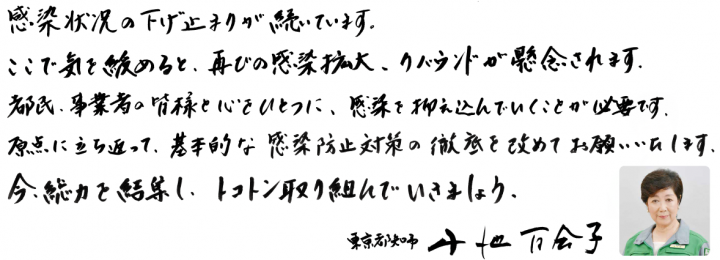 感染状況の下げ止まりが続いています。
ここで気を緩めると、再びの感染拡大、リバウンドが懸念されます。
都民、事業者の皆様と心をひとつに、感染を抑え込んでいくことが必要です。
原点に立ち返って、基本的な感染防止対策の徹底を改めてお願いいたします。
今、総力を結集し、トコトン取り組んでいきましょう。
東京都知事 小池百合子